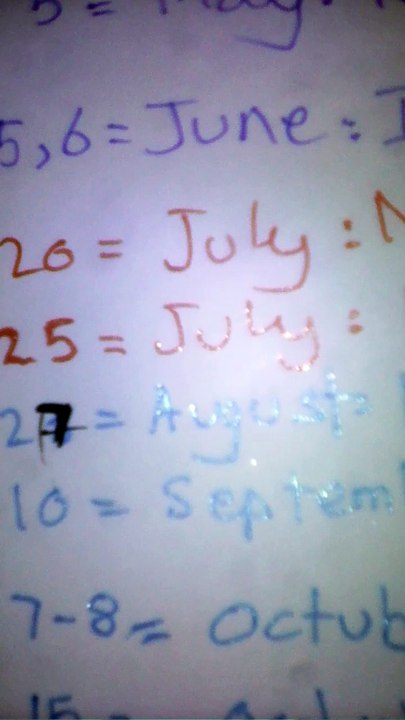 5 = May:
5,6 = June :
20 = July :
25 = July :
27 = August =
10 = Septem
7-8 = Octub
15 =